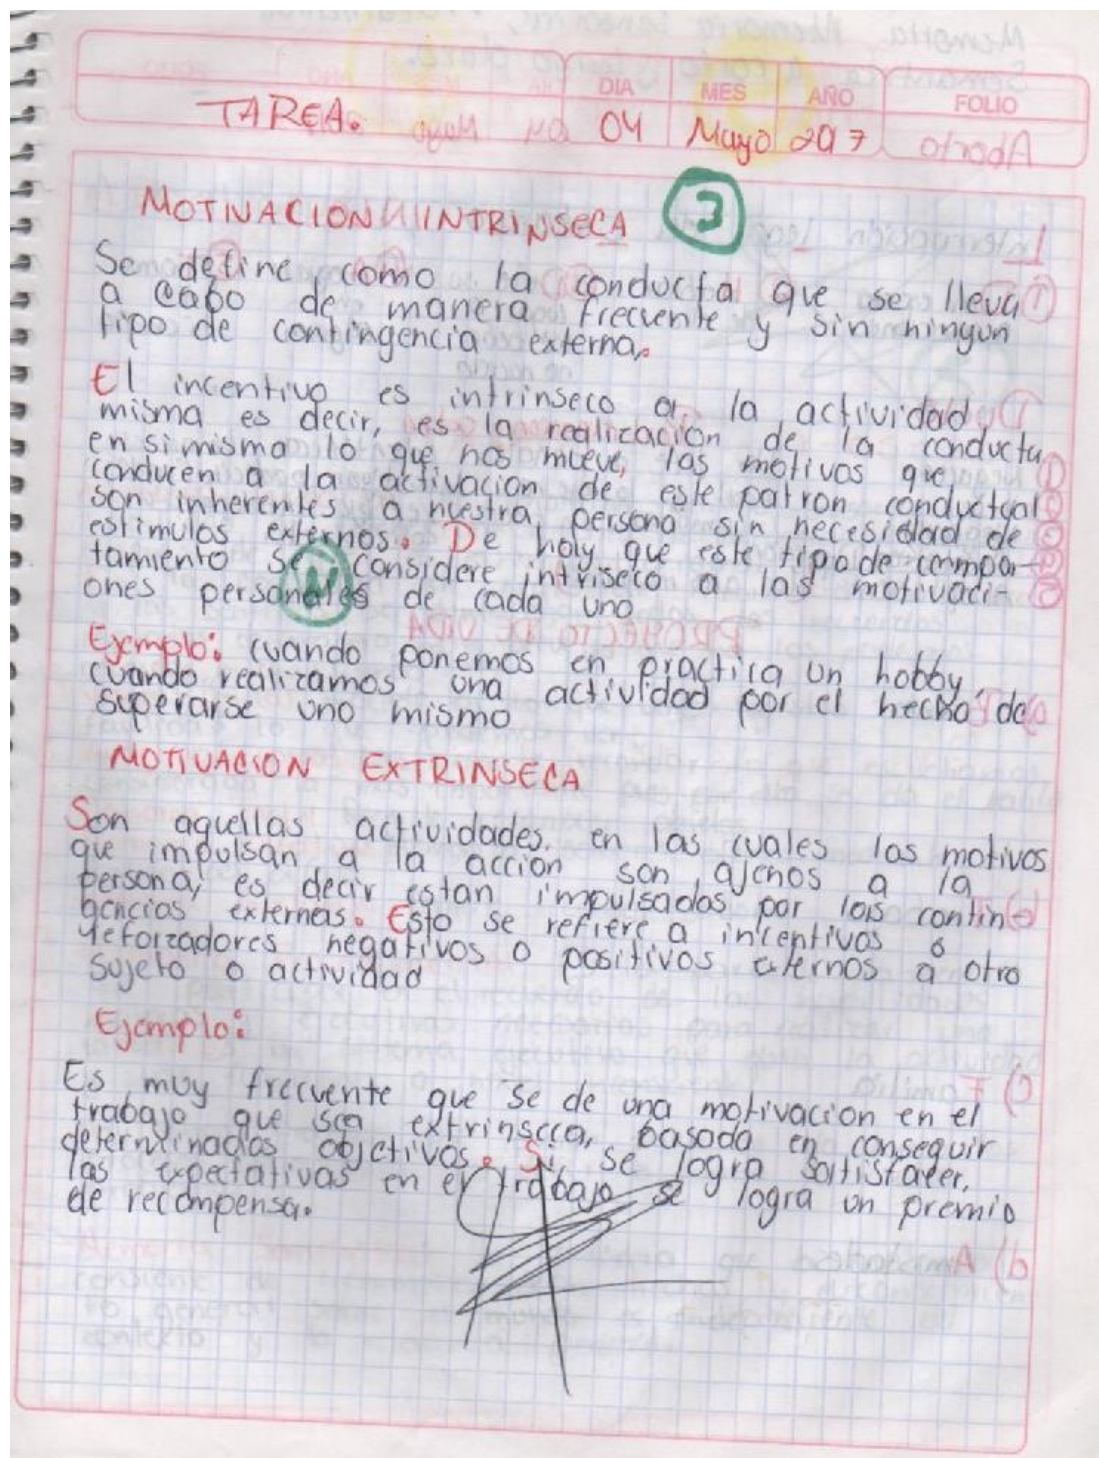 DIA MES AÑO FOLIO
TAREA. 04 Mayo 2017
MOTIVACION INTRINSECA 3
Se define como la conducta que se lleva
a cabo de manera frecuente y sin ningun
tipo de contingencia externa.
El incentivo es intrinseco a la actividad
misma es decir, es la realización de la conducta
en si misma lo que nos mueve, los motivos que
conducen a la activacion de este patron conductual
son inherentes a nuestra persona sin necesidad de
estimulos externos. De hay que este tipo de compor-
tamiento se considere intriseco a las motivaci-
ones personales de cada uno
Ejemplo: cuando ponemos en practica un hobby,
cuando realizamos una actividad por el hecho de
superarse uno mismo
MOTIVACION EXTRINSECA
Son aquellas actividades. en las cuales los motivos
que impulsan a la accion son ajenos a la
persona, es decir estan impulsados por las contin
gencias externas. Esto se refiere a incentivos o
reforzadores negativos o positivos externos a otro
sujeto o actividad
Ejemplo:
Es muy frecuente que se de una motivacion en el
trabajo que sea extrinseca, basada en conseguir
determinados objetivos. Si se logra satisfacer,
las expectativas en el trabajo se logra un premio
de recompensa.